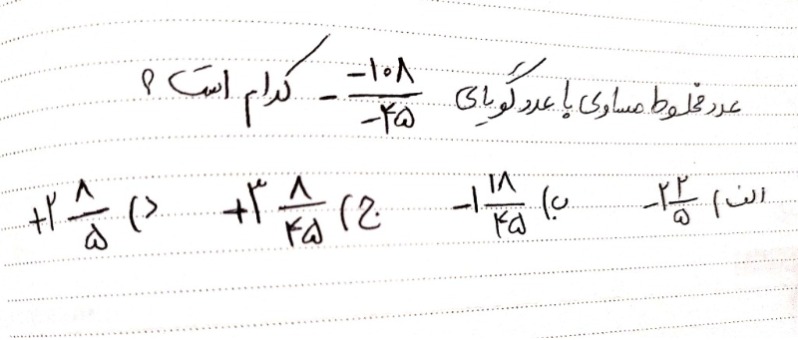 عدد مخلوط مساوی با عدد گویای -\frac{-۱۰۸}{-۴۵} کدام است ؟
الف) -۲\frac{۲}{۵} ب) -۱\frac{۱۸}{۴۵} ج) +۳\frac{۸}{۴۵} د) +۲\frac{۸}{۵}